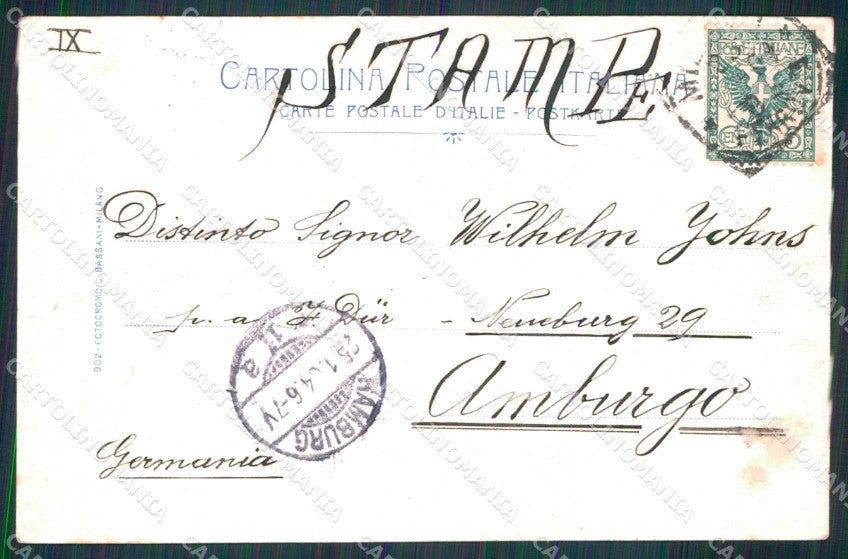 IX
STAMPE
CARTOLINA POSTALE ITALIANA
CARTE POSTALE D'ITALIE - POSTKARTE
POSTE ITALIANE
Distinto Signor Wilhelm Johns
p. a. F. Dür - Neueburg 29
Amburgo
Germania
HAMBURG
25.1.04.6-7V
902-FOTOCROMO C. BASSANI-MILANO
CARTOLINOMANIA